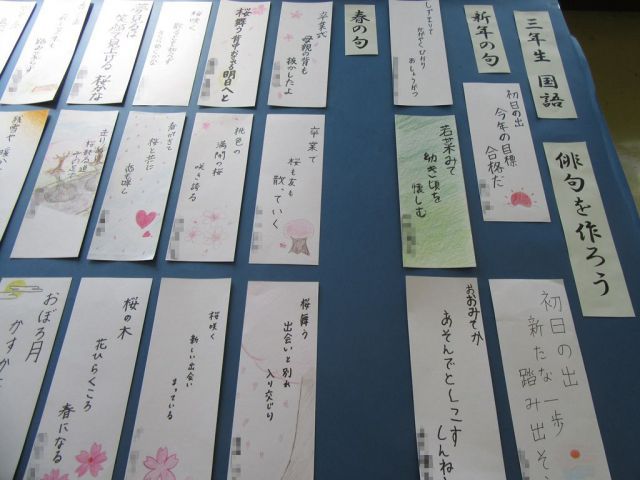 三年生 国語
俳句を作ろう
新年の句
初日の出
今年の目標
合格だ
初日の出
新たな一歩
踏み出そ
しずまりて
かがやくひかり
おしょうがつ
若菜みて
幼き頃を
懐しむ
おおみそか
あそんでとしこす
しんね
春の句
卒業式
母親の背も
抜かしたよ
卒業で
桜も友も
散っていく
桜舞う
出会いと別れ
入り交じり
桜舞う
明日へと
桃色の
満開の桜
咲き誇る
桜咲く
新しい出会い
まっている
桜咲く
春がきて
桜と共に
桜の木
花ひらくころ
春になる
笑顔で見上げる
桜かな
おぼろ月